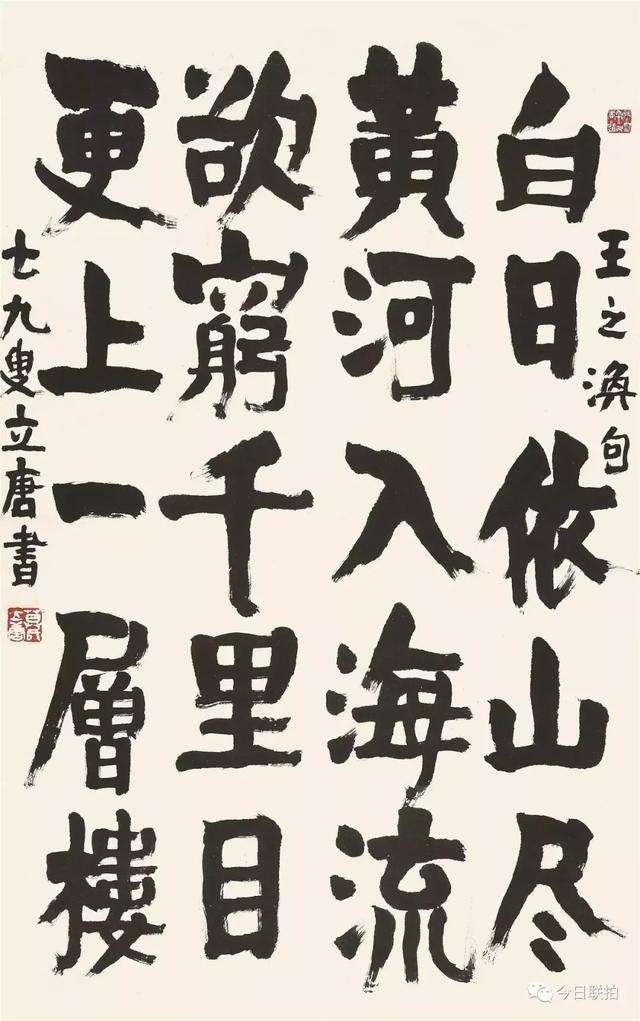 王之渙句
白日依山尽
黃河入海流
欲窮千里目
更上一層樓
七九叟立唐書
今日联拍